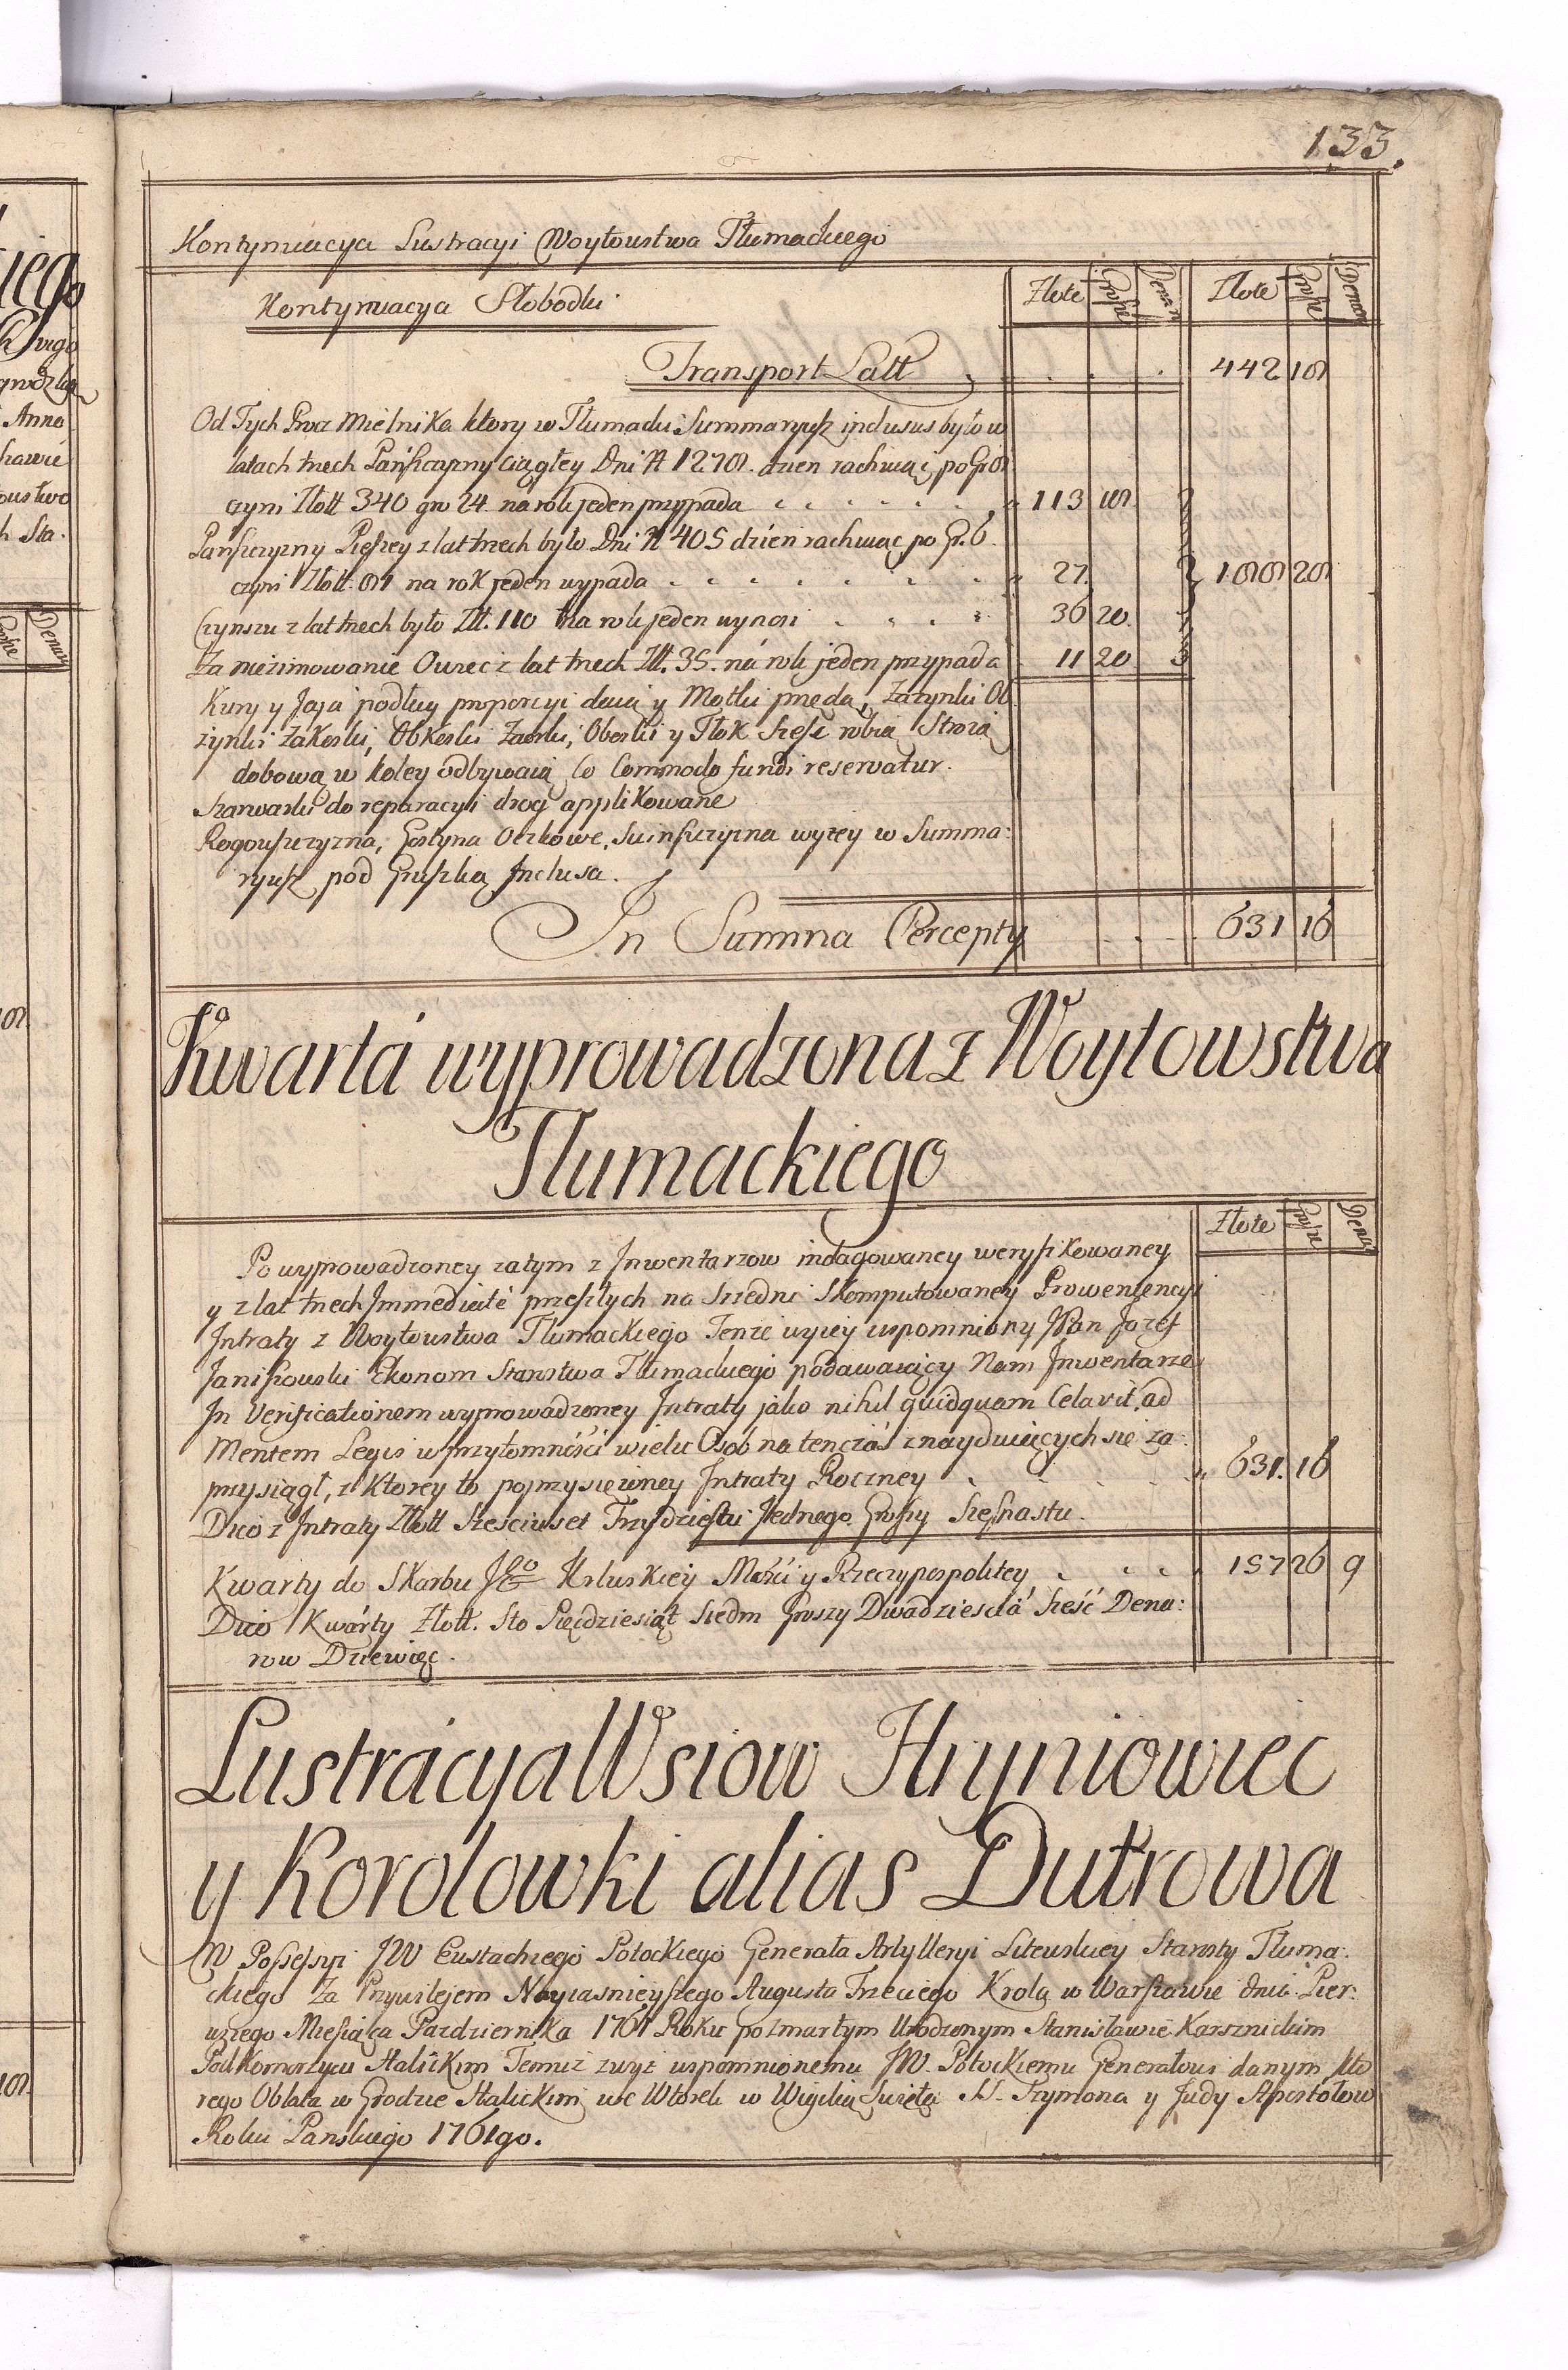 133.
Kontynuacya Lustracyi Woytowstwa Tłumackiego
Kontynuacya Słobodki
Złote Grosze Denar Złote Grosze Denar
Transport Latt . . . 442 18
Od Tych Procz Mielnika ktory w Tłumaczu Summaryusz inclusus było w
latach trzech Pańszczyzny ciągłey Dni N 1278. dzien rachuiąc po Gr 8
czyni Złott 340 gro 24. na rok jeden przypada 113 18.
Pańszczyzny Pieszey z lat trzech było Dni N 405 dzień rachuiąc po Gr. 6.
czyni Złott. 81 na rok jeden wypada 27. 188 28
Czynszu z lat trzech było Złł. 110 na rok jeden wynosi 36 20.
Za nieżimowanie Owiec z lat trzech Złł. 35. ná rok jeden przypada 11 20
Kury y Jaja podług proporcyi daią y Motki przędą, Zażynki Ob
żynki Zakoski, Obkoski Zaorki, Oborki y Tłok Sześć robią Stroża
dobową w koley odbywaią Co Commodo fundi reservatur.
Szarwarki do reparacyi drog applikowane
Rogowszczyzna, Gostyna Oczkowe, Swinszczyzna wyżey w Summa:
ryusz pod Gruszką Inclusa.
In Summa Percepty 631 16
Kwarta wyprowadzona z Woytowstwa
Tłumackiego
Złote Grosze Dena
Po wyprowadzoney zatym z Inwentarzow indagowaney weryfikowaney
y z lat trzech Immediaté przeszłych na Srzedni Skomputowaney Prowenienciyi
Intraty z Woytowstwa Tłumackiego Tenże wyżey wspomniony JPan Jozef
Janiszowski Ekonom Starostwa Tłumackiego podawaiący Nam Inwentarze
In Verificationem wyprowadzoney Intraty jako nihil quidquam Celavit, ad
Mentem Legis w przytomności wielu Osob na tenczas znayduiących się za:
przysiągł, z Ktorey to poprzysiężoney Intraty Roczney 631. 16
Dico z Intraty Złott Sześciuset Trzydziestu Jednego Groszy Szesnastu.
Kwarty do Skarbu JGo Krluskiey Mości y Rzeczypospolitey 157 26 9
Dico Kwarty Złott. Sto Pięćdziesiąt Siedm Groszy Dwadzieścia Sześć Dena:
row Dziewięć.
Lustracya Wsiow Hryniowiec
y Korolowki alias Dutrowa
W Possessyi JW Eustachiego Potockiego Generała Artylleryi Litewskiey Starosty Tłuma:
ckiego Za Przywilejem Nayiasnieyszego Augusta Trzeciego Krola w Warszawie dnia Pier:
wszego Miesiąca Pazdziernika 1761 Roku po zmarłym Urodzonym Stanisławie Karsznickim
Podkomorzycu Halickim Temuż zwyż wspomnionemu JW. Potockiemu Generałowi danym, kto
rego Oblata w Grodzie Halickim we Wtorek w Wigilią Swięta SS. Szymona y Judy Apostołow
Roku Panskiego 1761go.